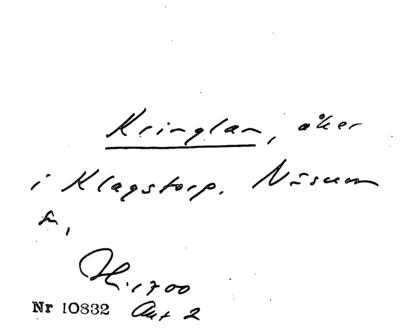 Kringlan, åker
i Klagstorp. Näsum
sn,
Hi. 1700
Nr 10832 Akt 2